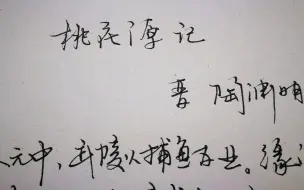 桃花源记
晋 陶渊明
元中，武陵人捕鱼为业。缘